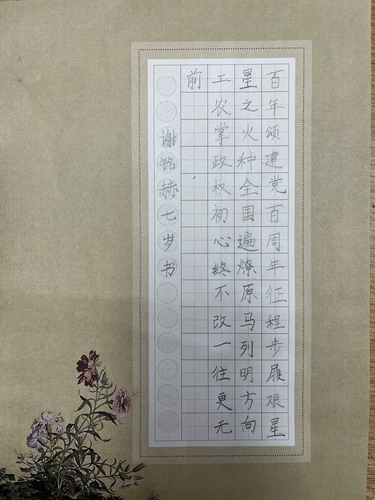 百年颂建党百周年征程步履艰星
星之火种全国遍燎原马列明方向
工农掌政权初心终不改一往更无
前
谢铭赫七岁书